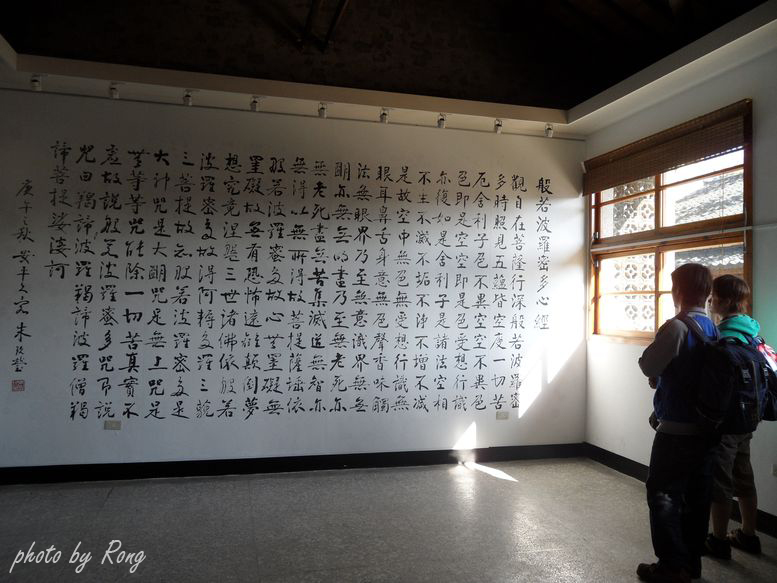 般若波羅蜜多心經
觀自在菩薩行深般若波羅蜜
多時照見五蘊皆空度一切苦
厄舍利子色不異空空不異色
色即是空空即是色受想行識
亦復如是舍利子是諸法空相
不生不滅不垢不淨不增不減
是故空中無色無受想行識無
眼耳鼻舌身意無色聲香味觸
法無眼界乃至無意識界無無
明亦無無明盡乃至無老死亦
無老死盡無苦集滅道無智亦
無得以無所得故菩提薩埵依
般若波羅蜜多故心無罣礙無
罣礙故無有恐怖遠離顛倒夢
想究竟涅槃三世諸佛依般若
波羅蜜多故得阿耨多羅三藐
三菩提故知般若波羅蜜多是
大神咒是大明咒是無上咒是
無等等咒能除一切苦真實不
虛故說般若波羅蜜多咒即說
咒曰羯諦波羅羯諦波羅僧羯
諦菩提娑婆訶
庚午之秋安平朱玖瑩
photo by Rong